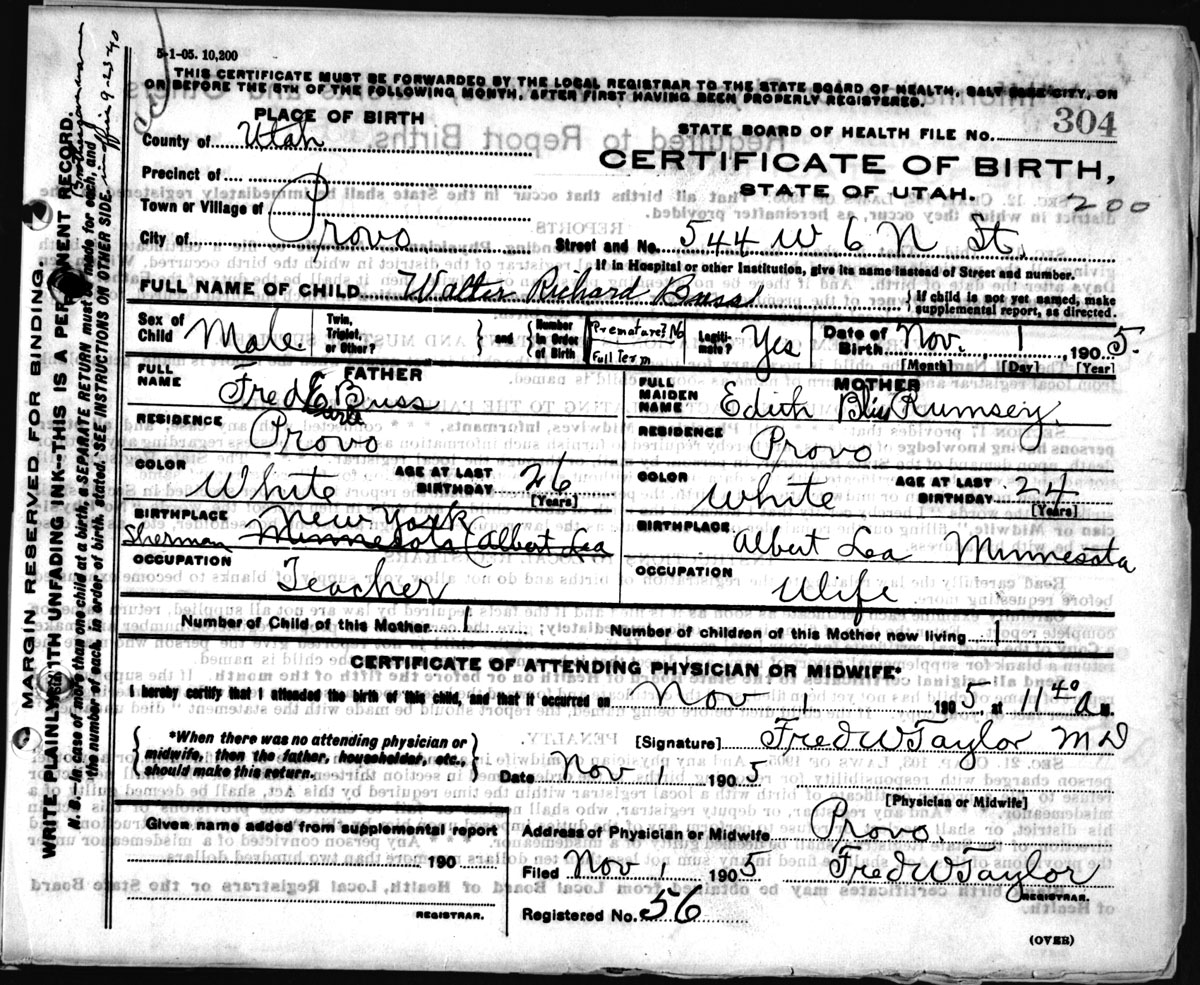 5-1-05. 10,200
THIS CERTIFICATE MUST BE FORWARDED BY THE LOCAL REGISTRAR TO THE STATE BOARD OF HEALTH, SALT LAKE CITY, ON
OR BEFORE THE 5TH OF THE FOLLOWING MONTH, AFTER FIRST HAVING BEEN PROPERLY REGISTERED.
PLACE OF BIRTH
County of Utah
Precinct of
Town or Village of
City of Provo
STATE BOARD OF HEALTH FILE NO. 304
CERTIFICATE OF BIRTH,
STATE OF UTAH.
200
Street and No. 544 W 6 N St.
If in Hospital or other Institution, give its name instead of Street and number.
FULL NAME OF CHILD Walter Richard Buss
If child is not yet named, make
supplemental report, as directed.
Sex of Child Male
Twin, Triplet, or Other?
and
Number in Order of Birth
Premature? No
Full Term
Legiti-mate? Yes
Date of Birth Nov. 1, 1905.
[Month] [Day] [Year]
FATHER
FULL NAME Fred E Buss
Earle
RESIDENCE Provo
COLOR White
AGE AT LAST BIRTHDAY 26
[Years]
BIRTHPLACE New York
Sherman Minnesota (Albert Lea
OCCUPATION
Teacher
MOTHER
FULL MAIDEN NAME Edith Rumsey
RESIDENCE Provo
COLOR White
AGE AT LAST BIRTHDAY 24
[Years]
BIRTHPLACE
Albert Lea Minnesota
OCCUPATION
Wife
Number of Child of this Mother 1
Number of children of this Mother now living 1
CERTIFICATE OF ATTENDING PHYSICIAN OR MIDWIFE
I hereby certify that I attended the birth of this child, and that it occurred on Nov 1 1905, at 11 40 A M.
*When there was no attending physician or
midwife, then the father, householder, etc.,
should make this return.
[Signature] Fred W Taylor MD
Date Nov 1 1905
[Physician or Midwife]
Given name added from supplemental report
190
REGISTRAR.
Address of Physician or Midwife Provo.
Filed Nov 1 1905 Fred W Taylor
REGISTRAR.
Registered No. 56
(OVER)
MARGIN RESERVED FOR BINDING.
WRITE PLAINLY WITH UNFADING INK--THIS IS A PERMANENT RECORD.
N. B. In case of more than one child at a birth, a SEPARATE RETURN must be made for each, and
the number of each, in order of birth, stated. SEE INSTRUCTIONS ON OTHER SIDE.
9-23-40